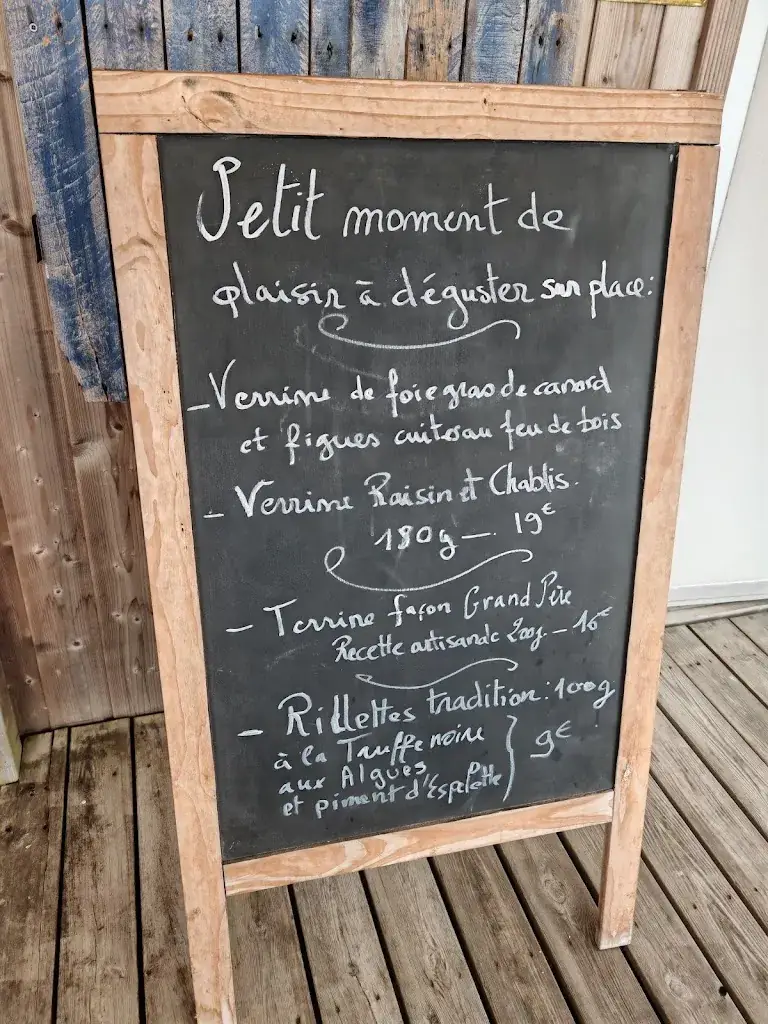 Petit moment de
plaisir à déguster sur place:
- Verrine de foie gras de canard
et figues cuites au feu de bois
- Verrine Raisin et Chablis.
180g - 19€
- Terrine façon Grand Père
Recette artisanale 200g. - 16€
- Rillettes tradition: 100g
à la Truffe noire
aux Algues, } 9€
et piment d'Espelette